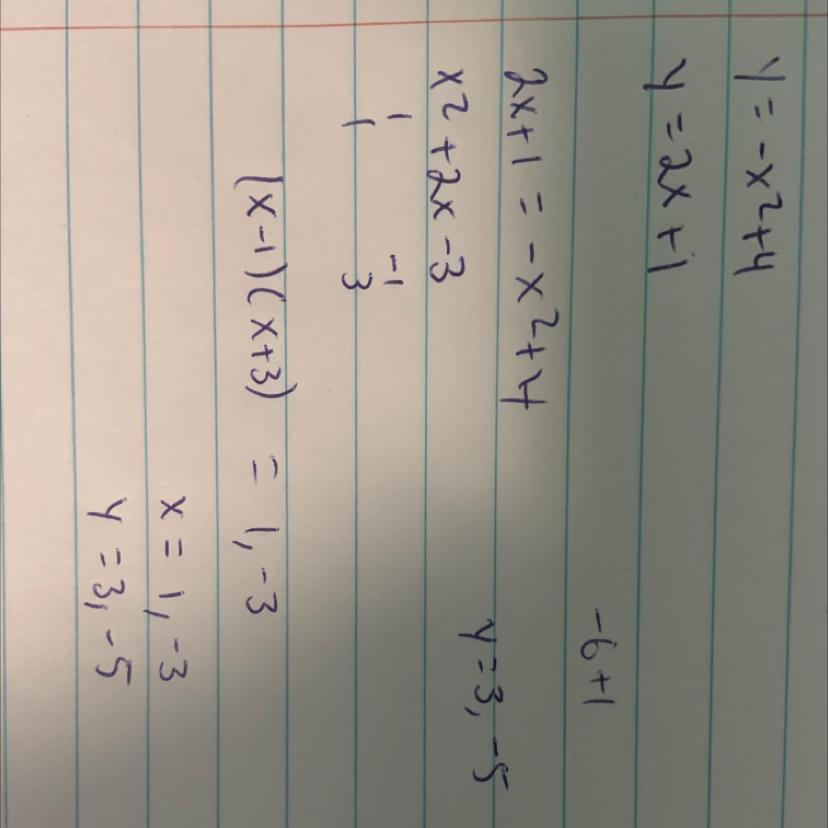 y = -x²+4
y = 2x +1
-6+1
2x+1 = -x²+4
y=3, -5
x² + 2x -3
1 -1
1 3
(x-1)(x+3) = 1, -3
x = 1, -3
y = 3, -5